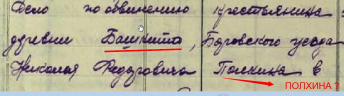 Дело по обвинению крестьянина
деревни Башкино, Боровского уезда
Николая Федоровича Полхина в
ПОЛХИНА ?